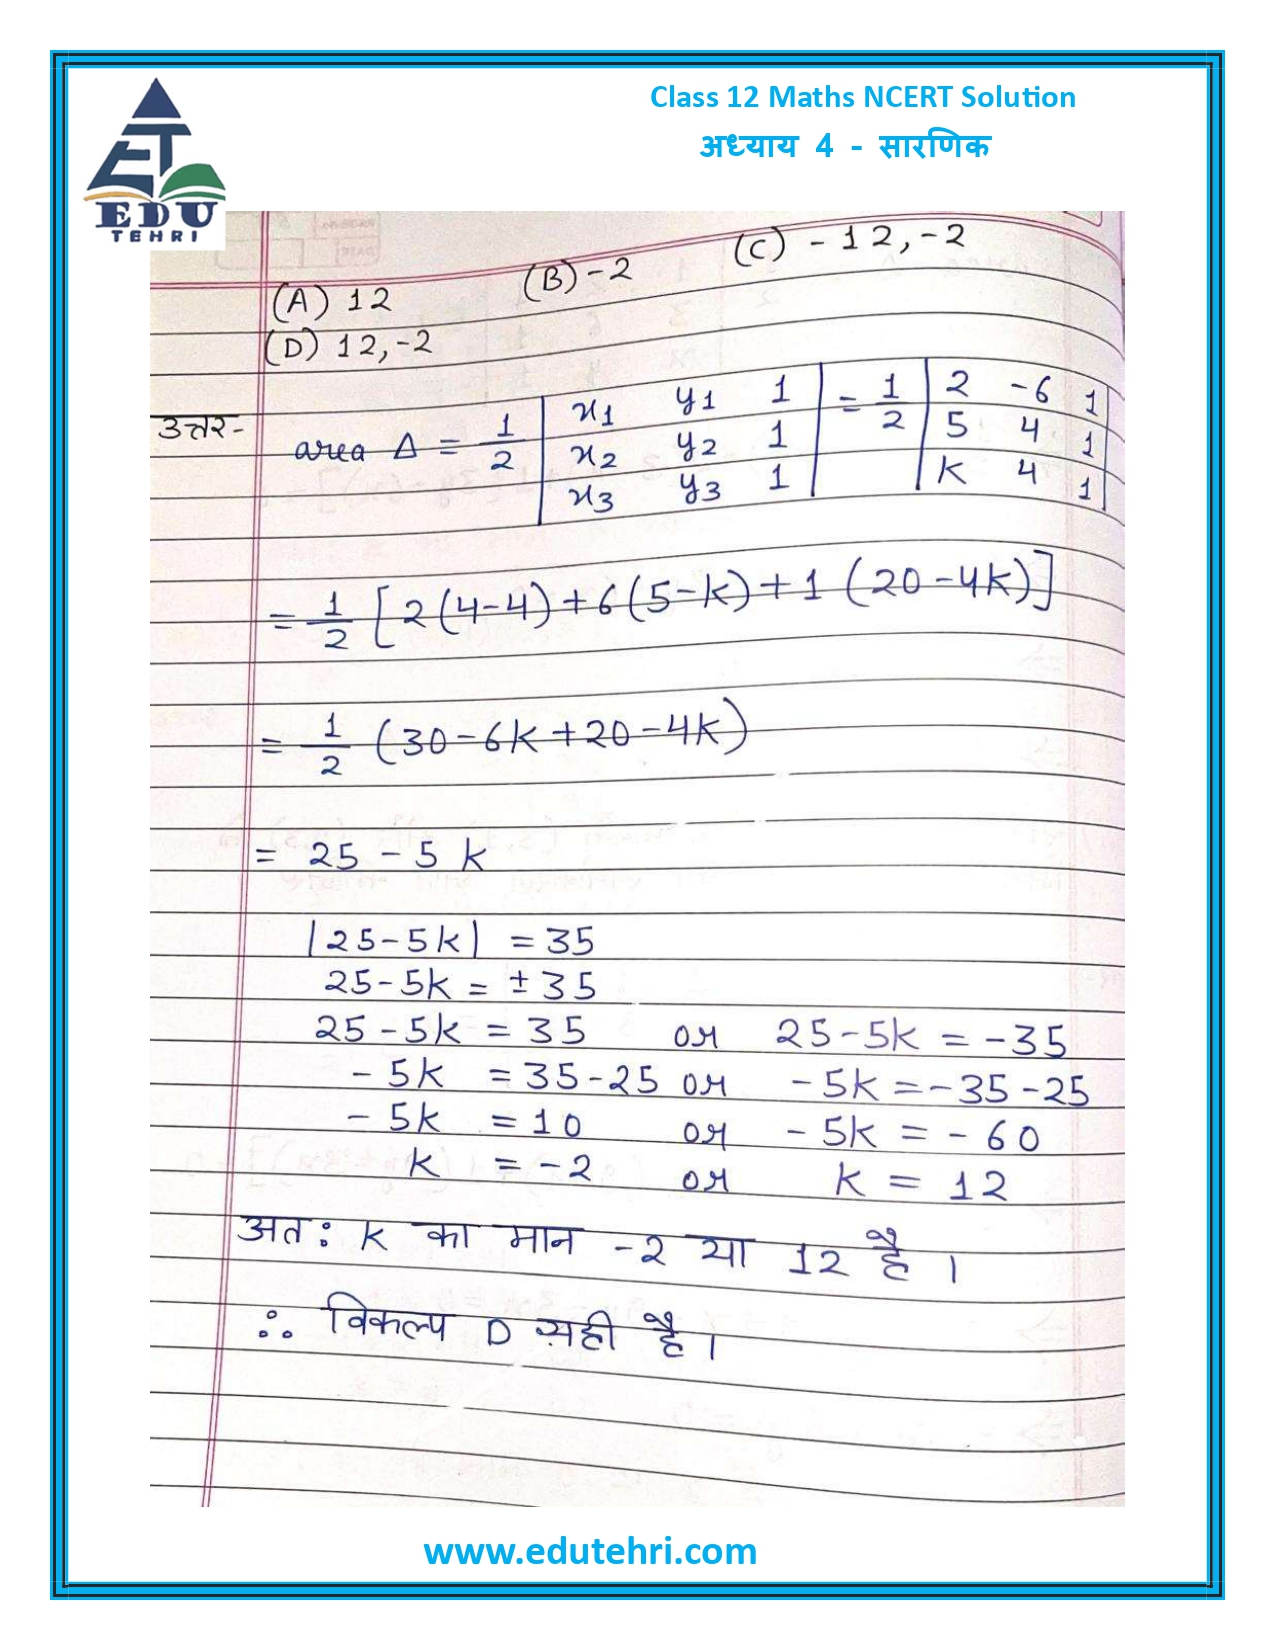 Class 12 Maths NCERT Solution
अध्याय 4 - सारणिक
EDU
TEHRI
(A) 12 (B) -2 (C) -12, -2
(D) 12, -2
उत्तर- area Δ = 1/2 | x1 y1 1 | = 1/2 | 2 -6 1 |
| x2 y2 1 | | 5 4 1 |
| x3 y3 1 | | K 4 1 |
= 1/2 [2(4-4)+6(5-k)+1(20-4k)]
= 1/2 (30-6k+20-4k)
= 25 - 5k
|25-5k| = 35
25-5k = ±35
25-5k = 35 or 25-5k = -35
-5k = 35-25 or -5k = -35-25
-5k = 10 or -5k = -60
k = -2 or k = 12
अत: K का मान -2 या 12 है।
∴ विकल्प D सही है।
www.edutehri.com